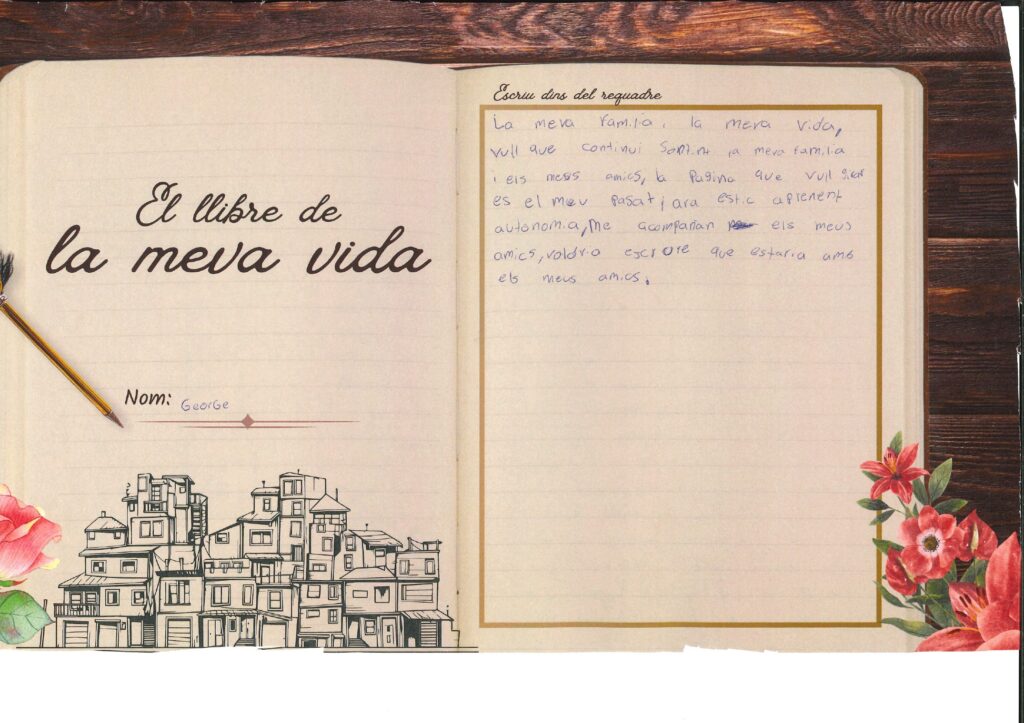 El llibre de
la meva vida
Nom: George
Escriu dins del requadre
La meva Familia, la meva vida,
vull que continui Sent.nt la meva Familia
i els meus amics, la Pagina que vull girar
es el meu Pasat, ara estic aprenent
autonomia, me acompañan els meus
amics, voldria escriore que estaria amb
els meus amics.